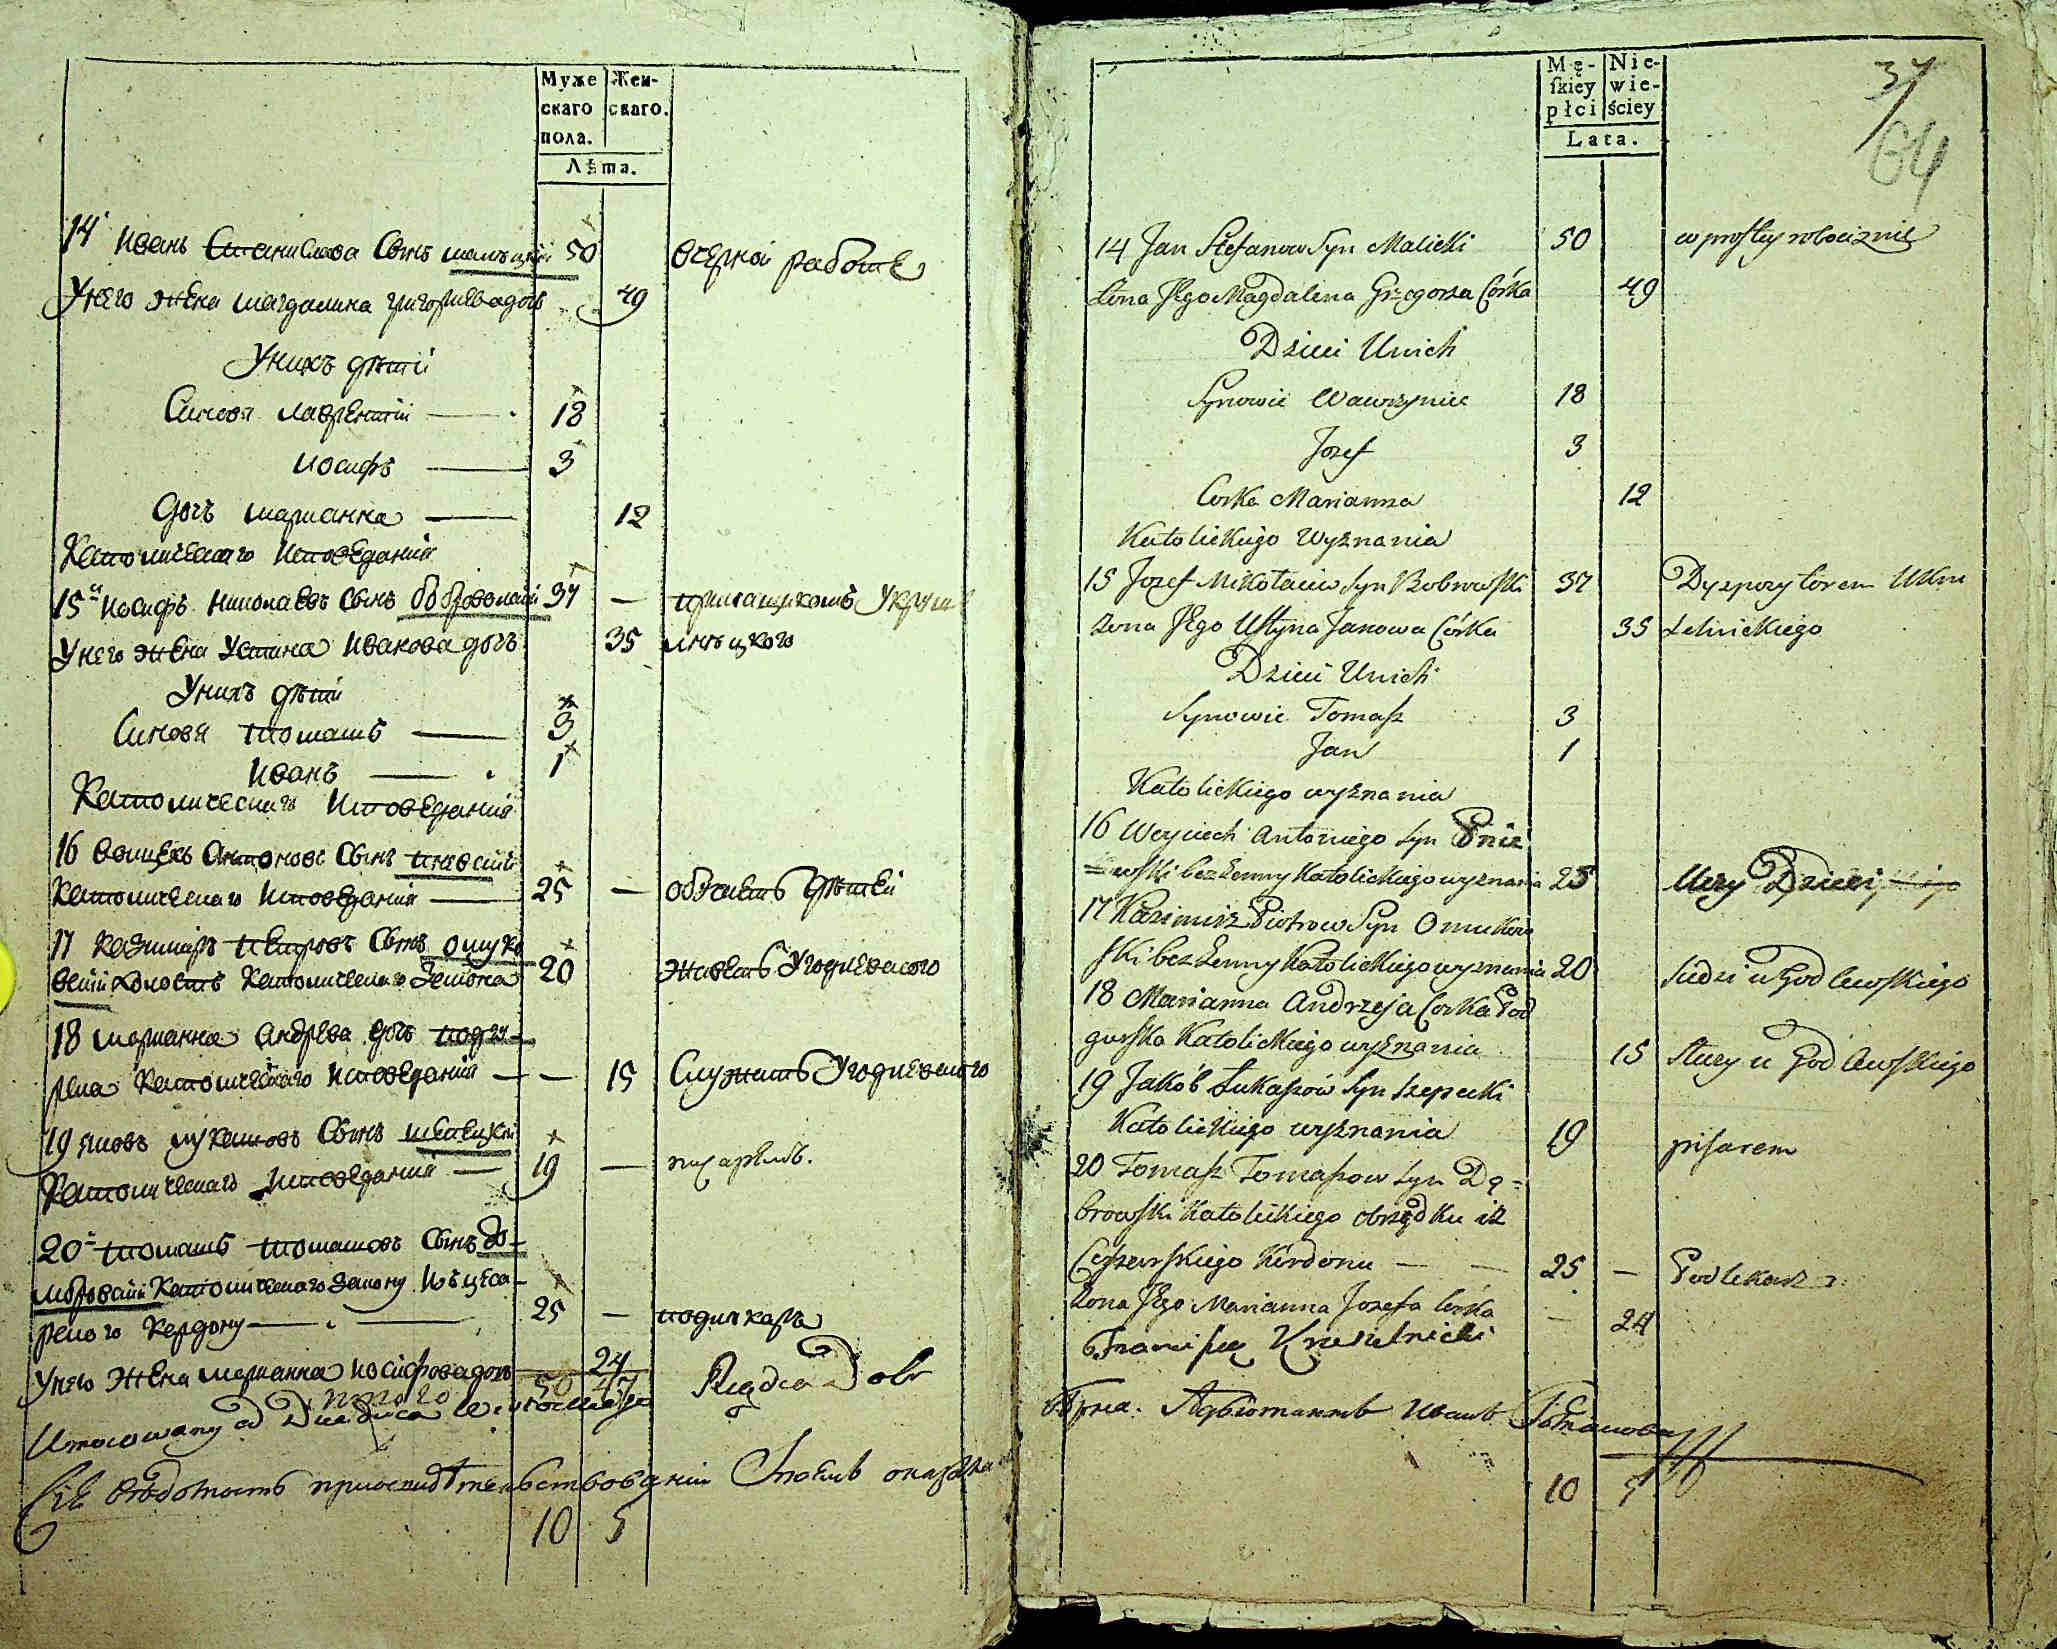 Муже
скаго
пола.
Жен-
скаго.
Лѣта.
14 Иванъ Станислава Сынъ малѣцкій 50 вчерной работе
Унего жена магдалина григориева дочь 49
Унихъ дѣти
Синовя лаврентий 18
иосифъ 3
дочь марианна 12
Католическаго Исповедания
15 Иосифъ Николаевъ Сынъ бобровский 37 —
Унего жена Устина Иванова дочь 35
Унихъ дѣти
Синовя томашъ 3
Иванъ 1
Католическаго Исповедания
16 Войцехъ Антоновъ Сынъ
Католическаго Исповедания 25 — обучаетъ дѣтей
17 Казимиръ Петровъ Сынъ омуко
вский холостъ Католическаго Закона 20 живетъ Угодлевского
18 марианна Андрева дочь подгу-
рска Католическаго Исповедания — — 15 Служитъ Угодлевского
19 яковъ лукашовъ Сынъ шепецкий
Католическаго Исповедания — 19 — писаремъ.
20 томашъ томашовъ Сынъ до-
мбровский Католическаго Закону Изъ цеса-
рского Кордону 25 — подлекаръ
Унего жена марианна иосифова дочь 24
50 47 Rządca Dobr
Umocowany od Dziedzica
Сія вѣдомость при освидѣтельствованіи
10 5
Mę-
skiey
płci
Nie-
wie-
ściey
Lata.
37
64
14 Jan Stefanow Syn Malicki 50 w prostey robociznie
Żona Jego Magdalena Grzegorza Córka 49
Dzieci Unich
Synowie Wawrzyniec 18
Jozef 3
Corka Marianna 12
Katolickiego Wyznania
15 Jozef Mikołaiew Syn Bobrowski 37 Dyspozytorem UKru
Żona Jego Ustyna Janowa Córka 35
Dzieci Unich
Synowie Tomasz 3
Jan 1
Katolickiego wyznania
16 Woyciech Antoniego Syn Pnie
=wski bezżenny Katolickiego wyznania 25 Uczy Dzieci
17 Kazimirz Piotrow Syn Omukow
ski bezżenny Katolickiego wyznania 20 siedzi u Godlewskiego
18 Marianna Andrzeja Corka Pod
gurska Katolickiego wyznania 15 służy u Godlewskiego
19 Jakób Łukaszów Syn Szepecki
Katolickiego wyznania 19 pisarem
20 Tomasz Tomaszow Syn Dą=
browski Katolickiego obrządku iz
Cesarskiego Kordonu — — 25 — Podlekarz
Żona Jego Marianna Jozefa Córka — 24
Franciszek
Адъютантъ Иванъ
10 5